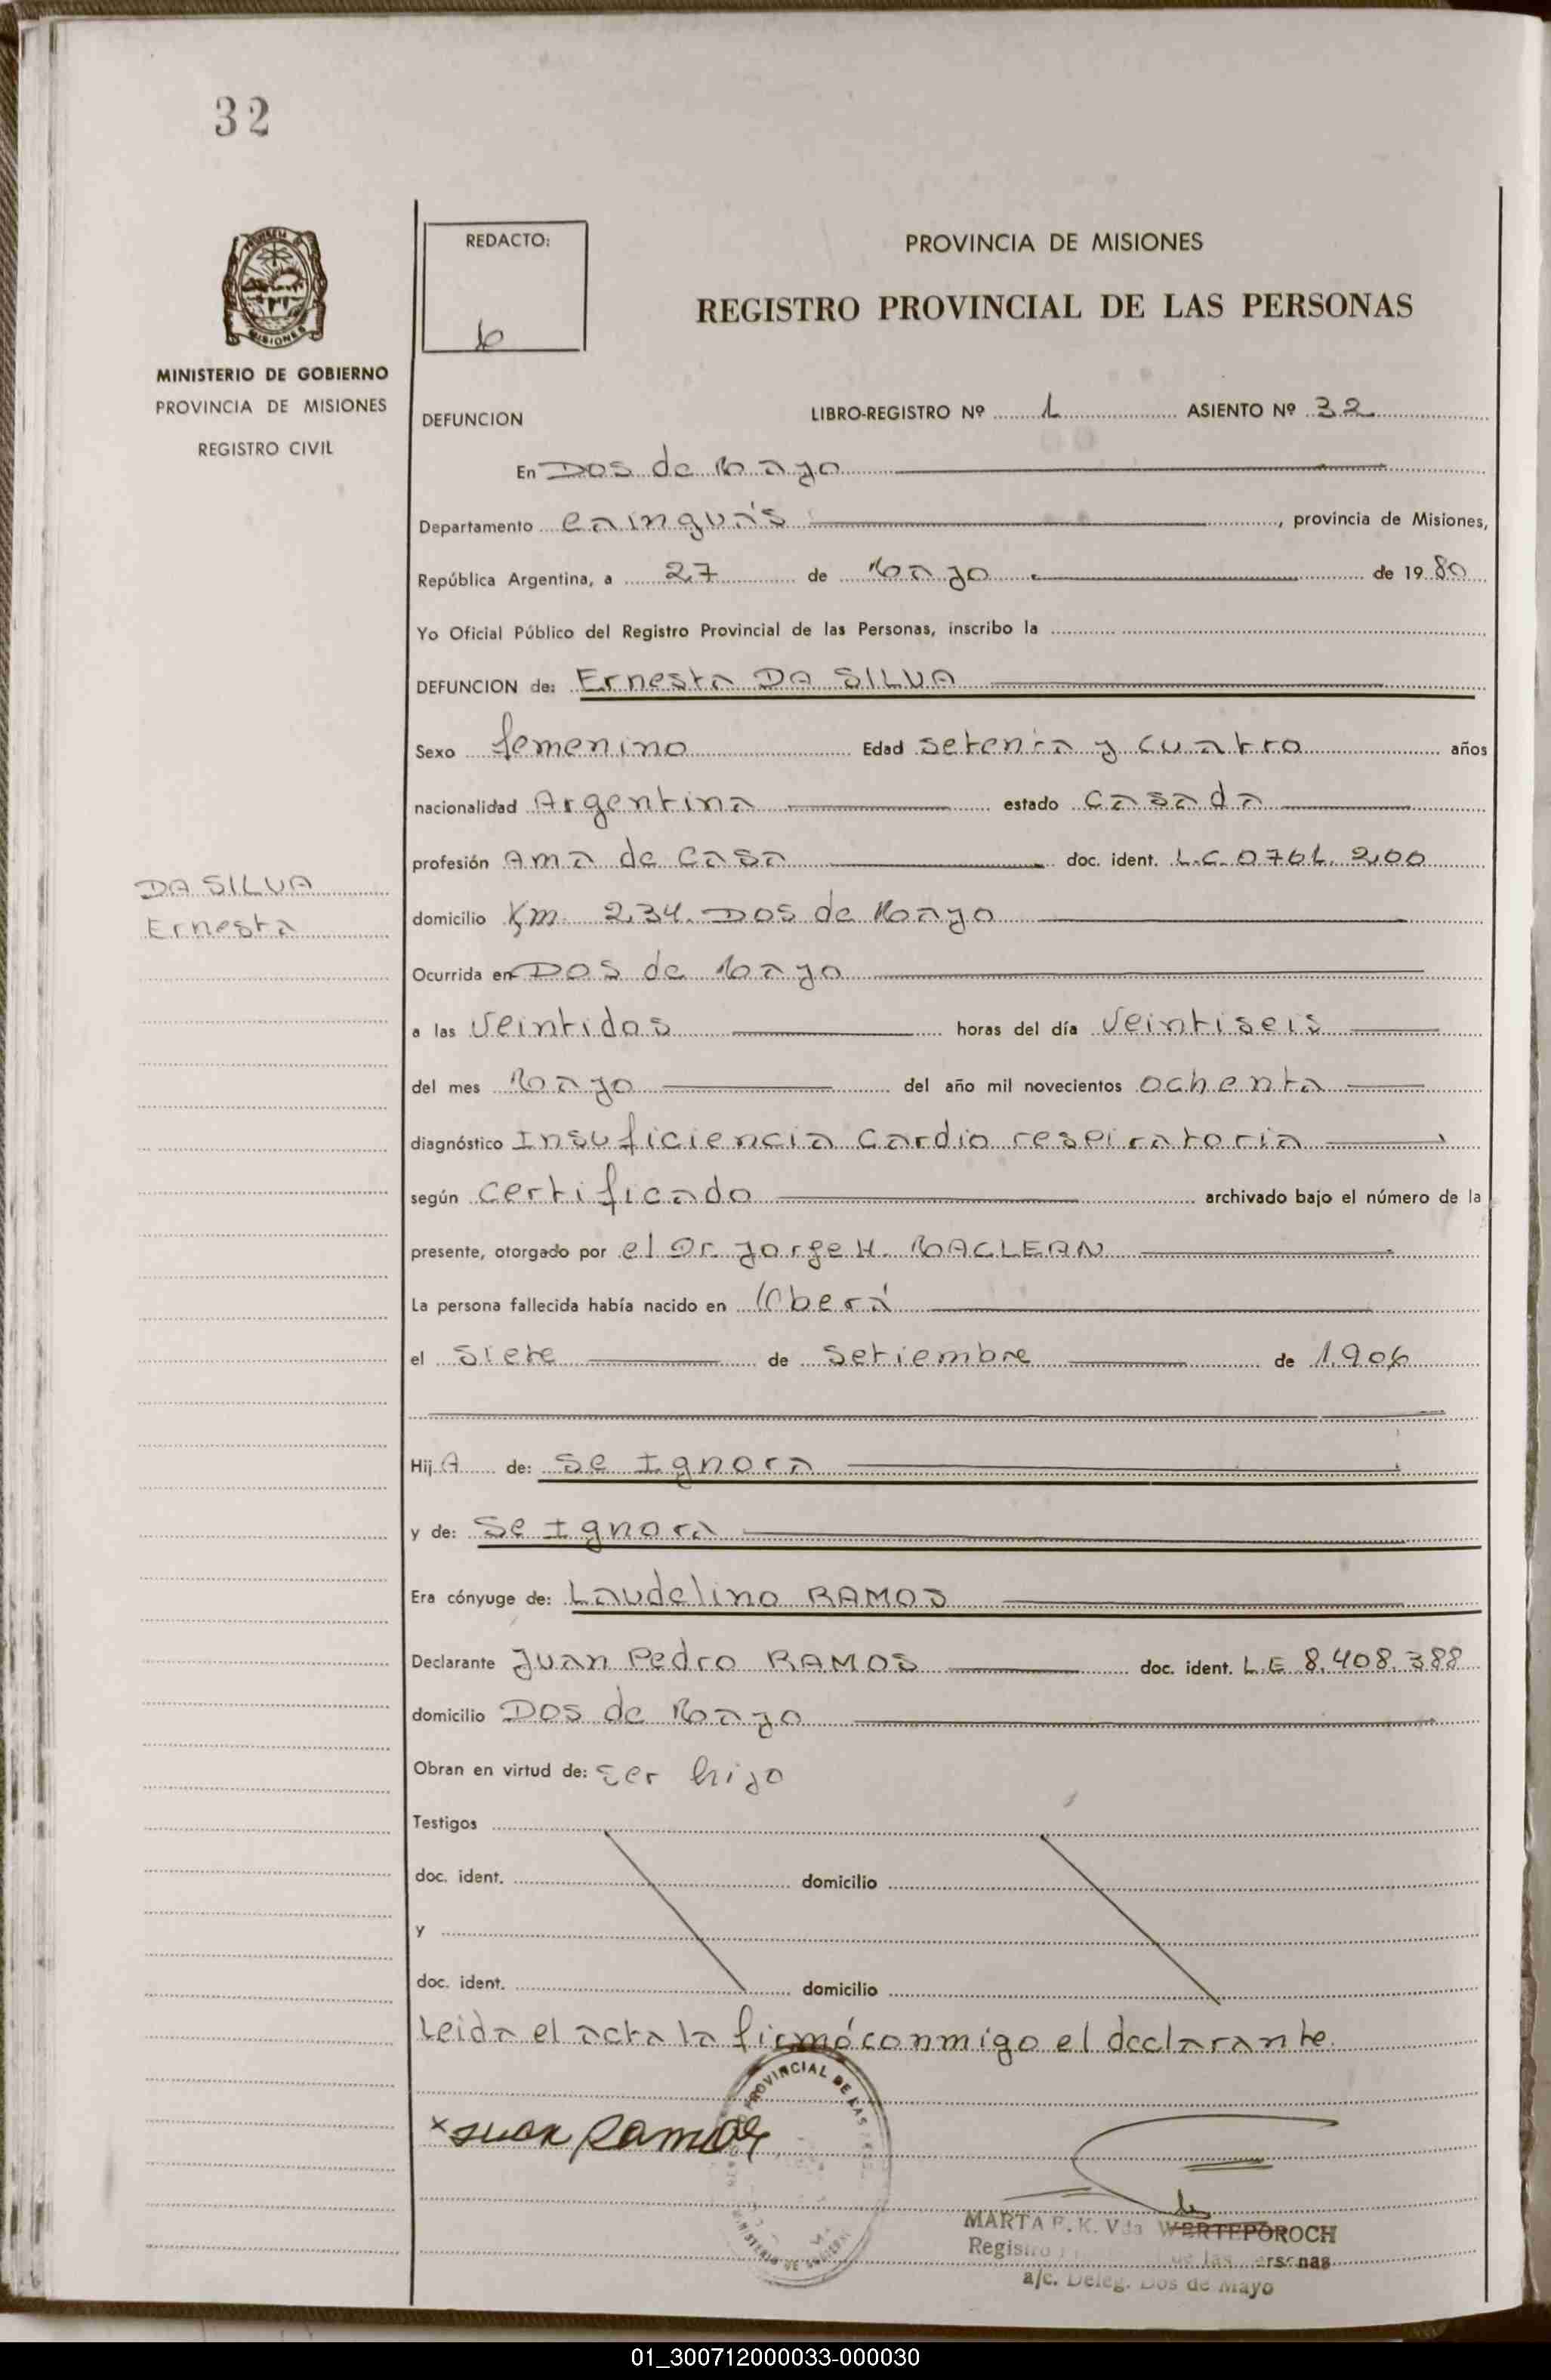 32
MISIONES
MINISTERIO DE GOBIERNO
PROVINCIA DE MISIONES
REGISTRO CIVIL
DA SILVA
Ernesta
REDACTO:
PROVINCIA DE MISIONES
REGISTRO PROVINCIAL DE LAS PERSONAS
DEFUNCION
LIBRO-REGISTRO Nº 1 ASIENTO Nº 32
En Dos de Mayo
Departamento Cainguás, provincia de Misiones,
República Argentina, a 27 de Mayo de 1980
Yo Oficial Público del Registro Provincial de las Personas, inscribo la
DEFUNCION de: Ernesta DA SILVA
Sexo femenino Edad setenta y cuatro años
nacionalidad Argentina estado casada
profesión Ama de casa doc. ident. L.C.
domicilio Km. 234. Dos de Mayo
Ocurrida en Dos de Mayo
a las Veintidos horas del día Veintiseis
del mes Mayo del año mil novecientos ochenta
diagnóstico Insuficiencia cardio respiratoria
según certificado archivado bajo el número de la
presente, otorgado por el Dr. Jorge H. MACLEAN
La persona fallecida había nacido en Oberá
el siete de setiembre de 1.906
Hij A de: Se Ignora
y de: Se Ignora
Era cónyuge de: Laudelino RAMOS
Declarante Juan Pedro RAMOS doc. ident. L.E 8.408.388
domicilio Dos de Mayo
Obran en virtud de: ser hijo
Testigos
doc. ident. domicilio
y
doc. ident. domicilio
Leida el acta la firmó conmigo el declarante.
PROVINCIAL DE LAS
x Juan Ramos
MARTA K. Vda WERTEPOROCH
Registro de las Personas
a/c. Deleg. Dos de Mayo
01_300712000033-000030